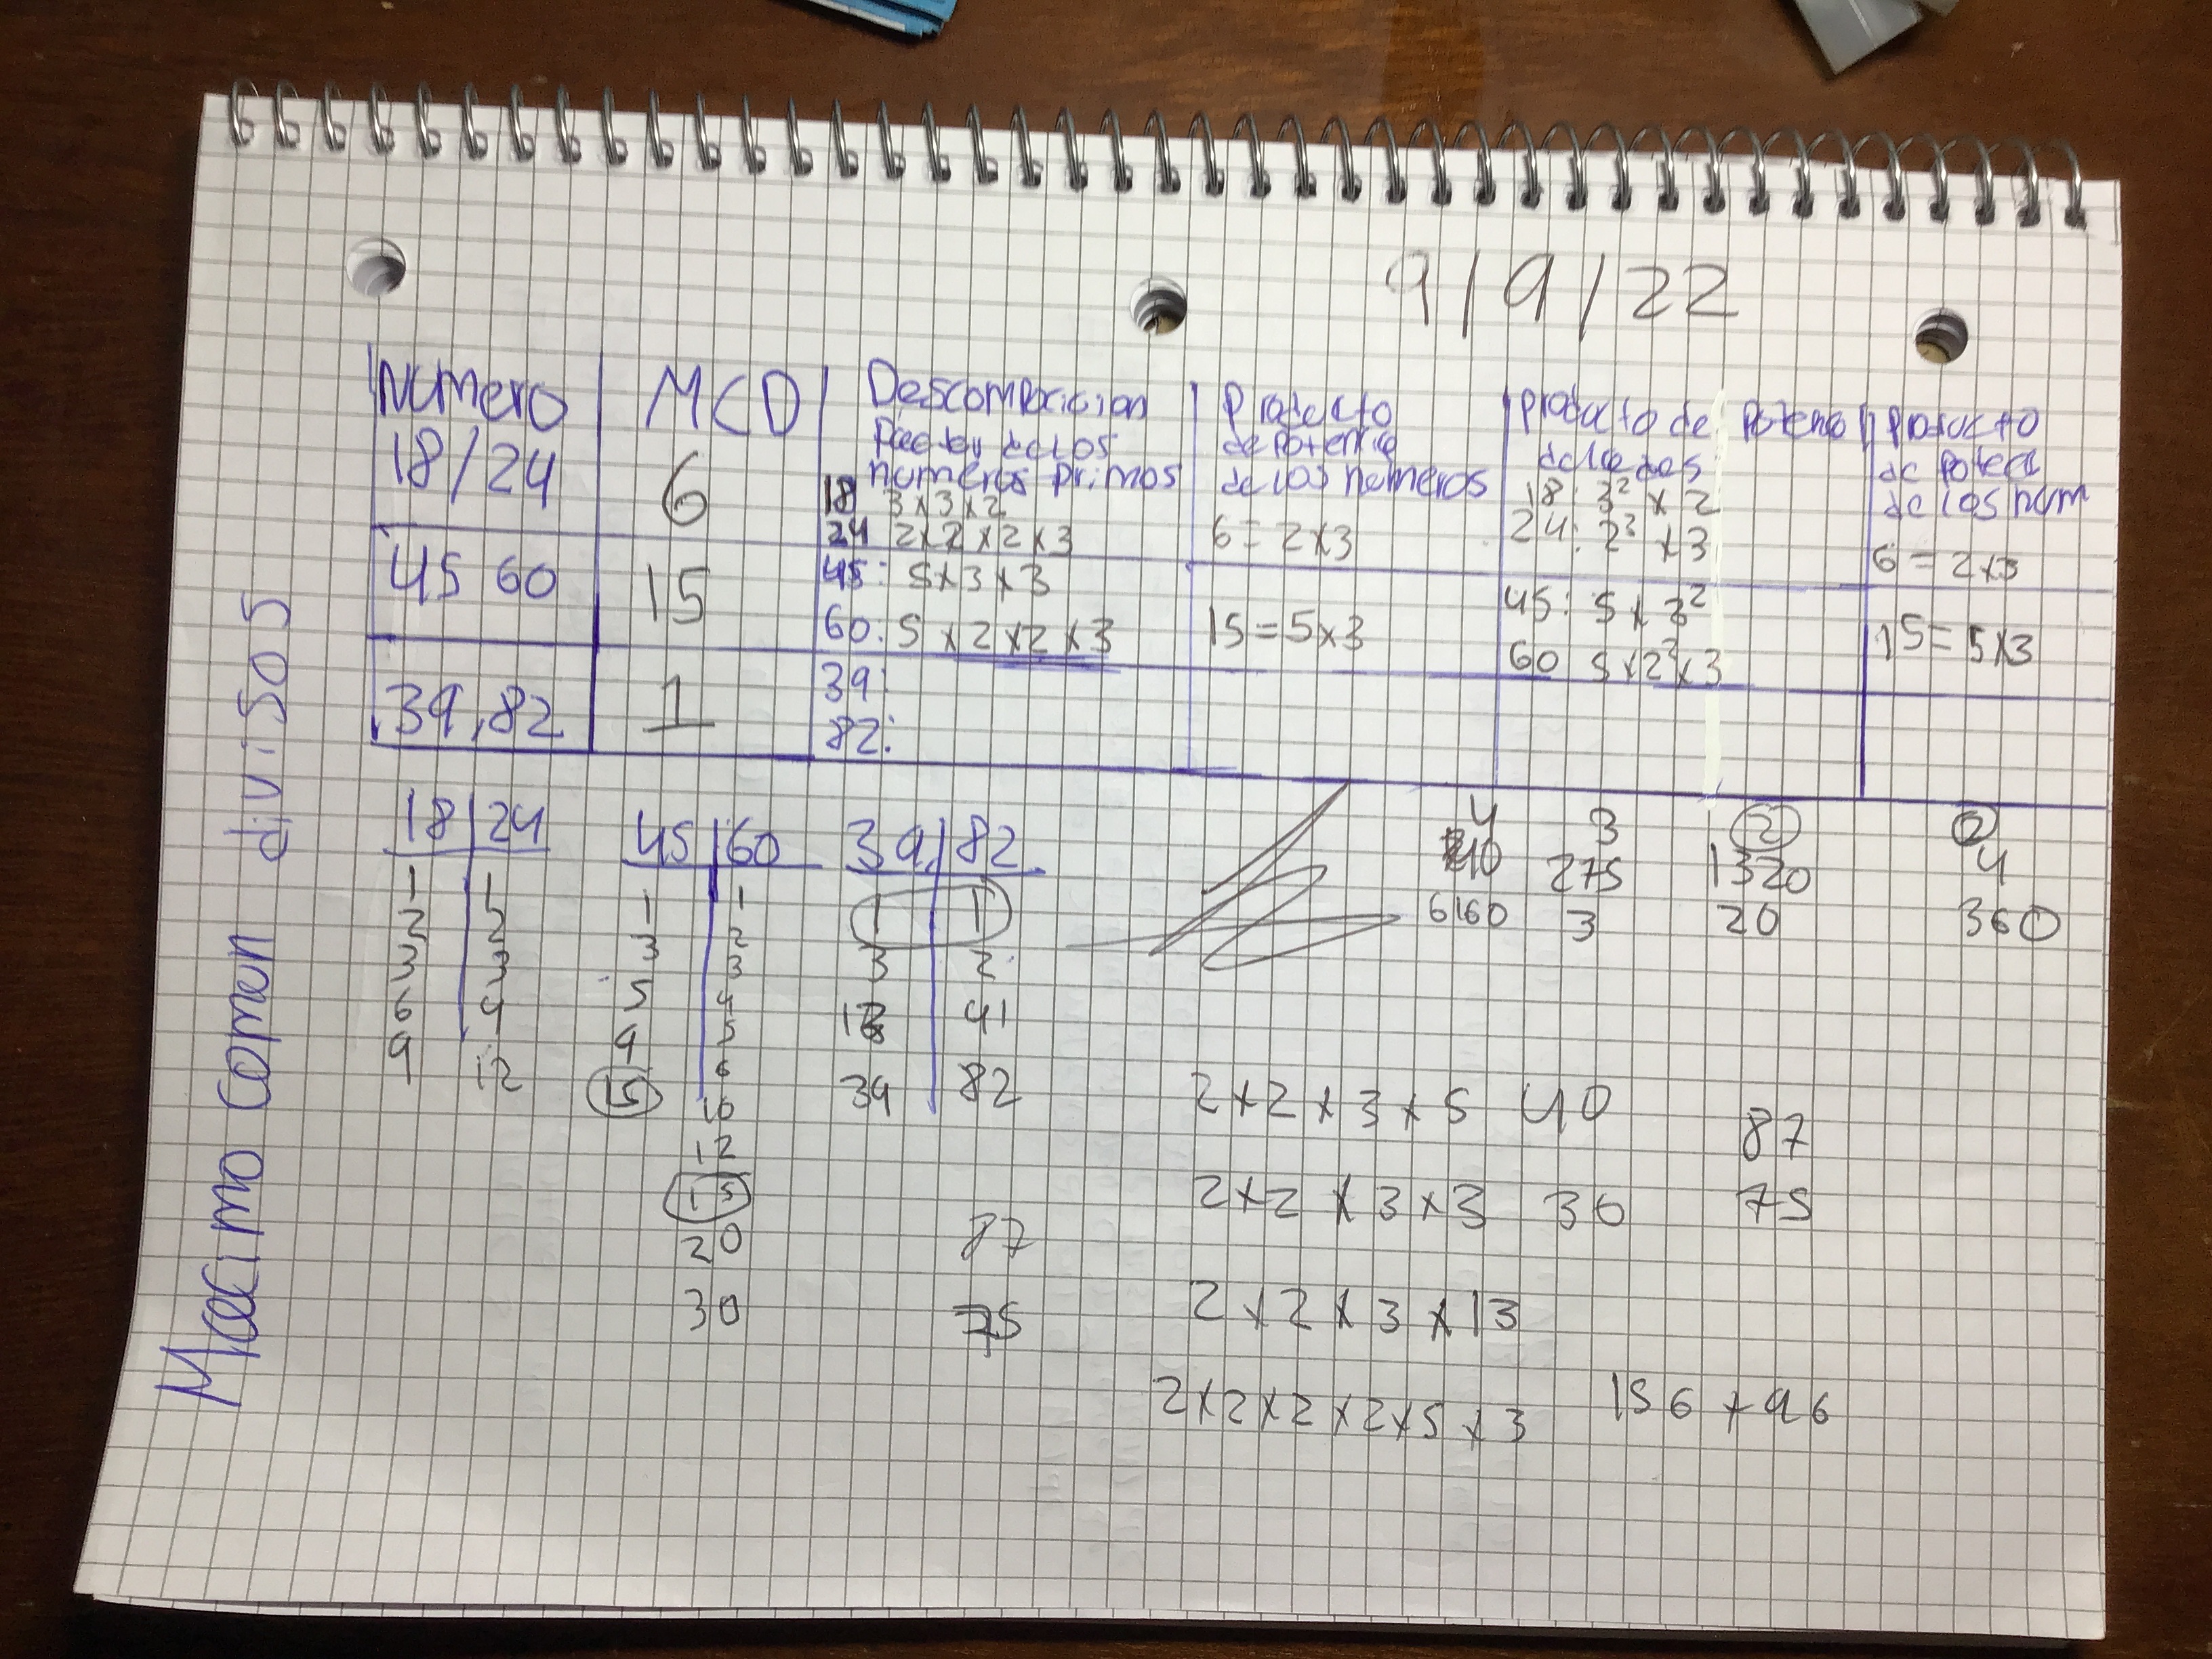 9/9/22
Numero
18/24
MCD
6
Descomposicion
de los
numeros primos
18 3x3x2
24 2x2x2x3
Producto
de potencia
de los numeros
6=2x3
producto de potenc
de los dos
18: 3² x 2
24: 2³ x3
producto
de poten
de los num
6=2x3
45 60
15
45: 5x3x3
60: 5x2x2x3
15=5x3
45: 5x3²
60 5x2²x3
15=5x3
39,82
1
39:
82:
Maccimo Comun divisor
18|24
1 1
2 2
3 3
6 4
9 12
45|60
1 1
3 2
5 3
9 4
15 5
6
10
12
15
20
30
39/82
1 1
3 2
13 41
39 82
87
75
4 3 2 2
10 275 1320 4
6160 3 20 360
2x2x3x5 40
2x2x3x3 36
87
75
2x2x3x13
2x2x2x2x5x3 156+96